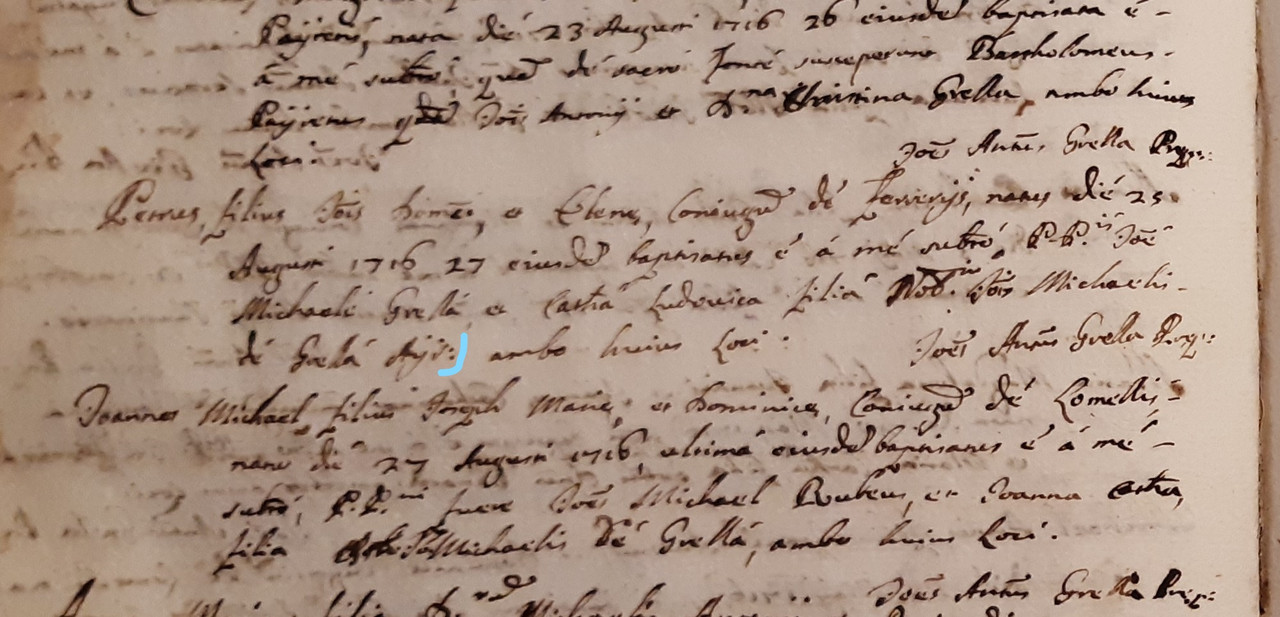 Payretus, nata die 23 Augusti 1716 26 eiusdẽ baptisata é -
á mé subtõ, quã dé sacro fonté susceperunt Bartholomeus -
Payretus qdã Jois Antonij et D.na Christina Grella, ambo huius
Loci
Joẽs Antũs Grella Prep:
Petrus, filius Jõis Domci, et Elene, Coniugũ dé Ferrerijs, natus dié 25
Augusti 1716 27 eiusdẽ baptisatus é á mé subtõ, P.P.is Joẽ
Michaelé Grellá, et Ludovica filiá Nob. Jõis Michaelis -
dé Grellá ambo huius Loci :
Joẽs Antũs Grella Prep:
Joannes Michael, filius Joseph Marie, et Dominice, Coniugũ dé Lomellis -
natus dié 27 Augusti 1716, ultimá eiusdẽ baptisatus é á mé -
subtõ, P.P.ni fuere Joẽs Michael Rubeus, et Joanna
filia Michaelis Dé Grellá, ambo huius Loci .
Joẽs Antũs Grella Prep:
filia Michaelis